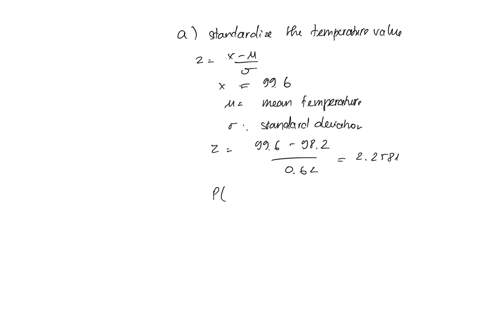 a) standardize the temperature value
z = x - μ / σ
x = 99.6
μ = mean temperature
σ : standard deviation
z = 99.6 - 98.2 / 0.62 = 2.2581
P(